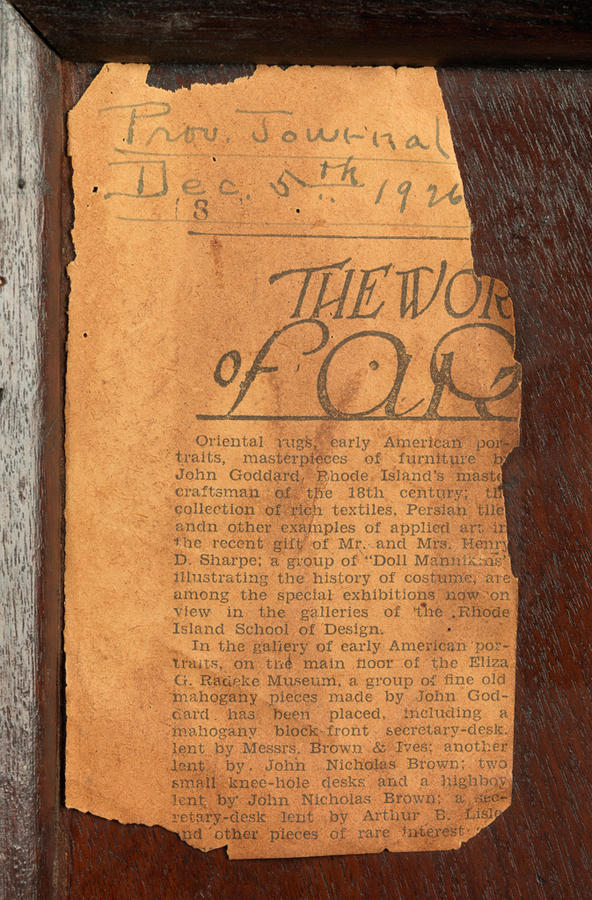 Prov. Journal
Dec. 5th 1926
8
THE WOR
of ART
Oriental rugs, early American por-
traits, masterpieces of furniture b
John Goddard, Rhode Island's maste
craftsman of the 18th century; th
collection of rich textiles, Persian tile
andn other examples of applied art in
the recent gift of Mr. and Mrs. Henry
D. Sharpe; a group of "Doll Mannikins"
illustrating the history of costume, are
among the special exhibitions now on
view in the galleries of the Rhode
Island School of Design.
In the gallery of early American por-
traits, on the main floor of the Eliza
G. Radeke Museum, a group of fine old
mahogany pieces made by John God-
dard has been placed, including a
mahogany block-front secretary-desk
lent by Messrs. Brown & Ives; another
lent by John Nicholas Brown; two
small knee-hole desks and a highboy
lent by John Nicholas Brown; a sec-
retary-desk lent by Arthur B. Lisle
and other pieces of rare interest